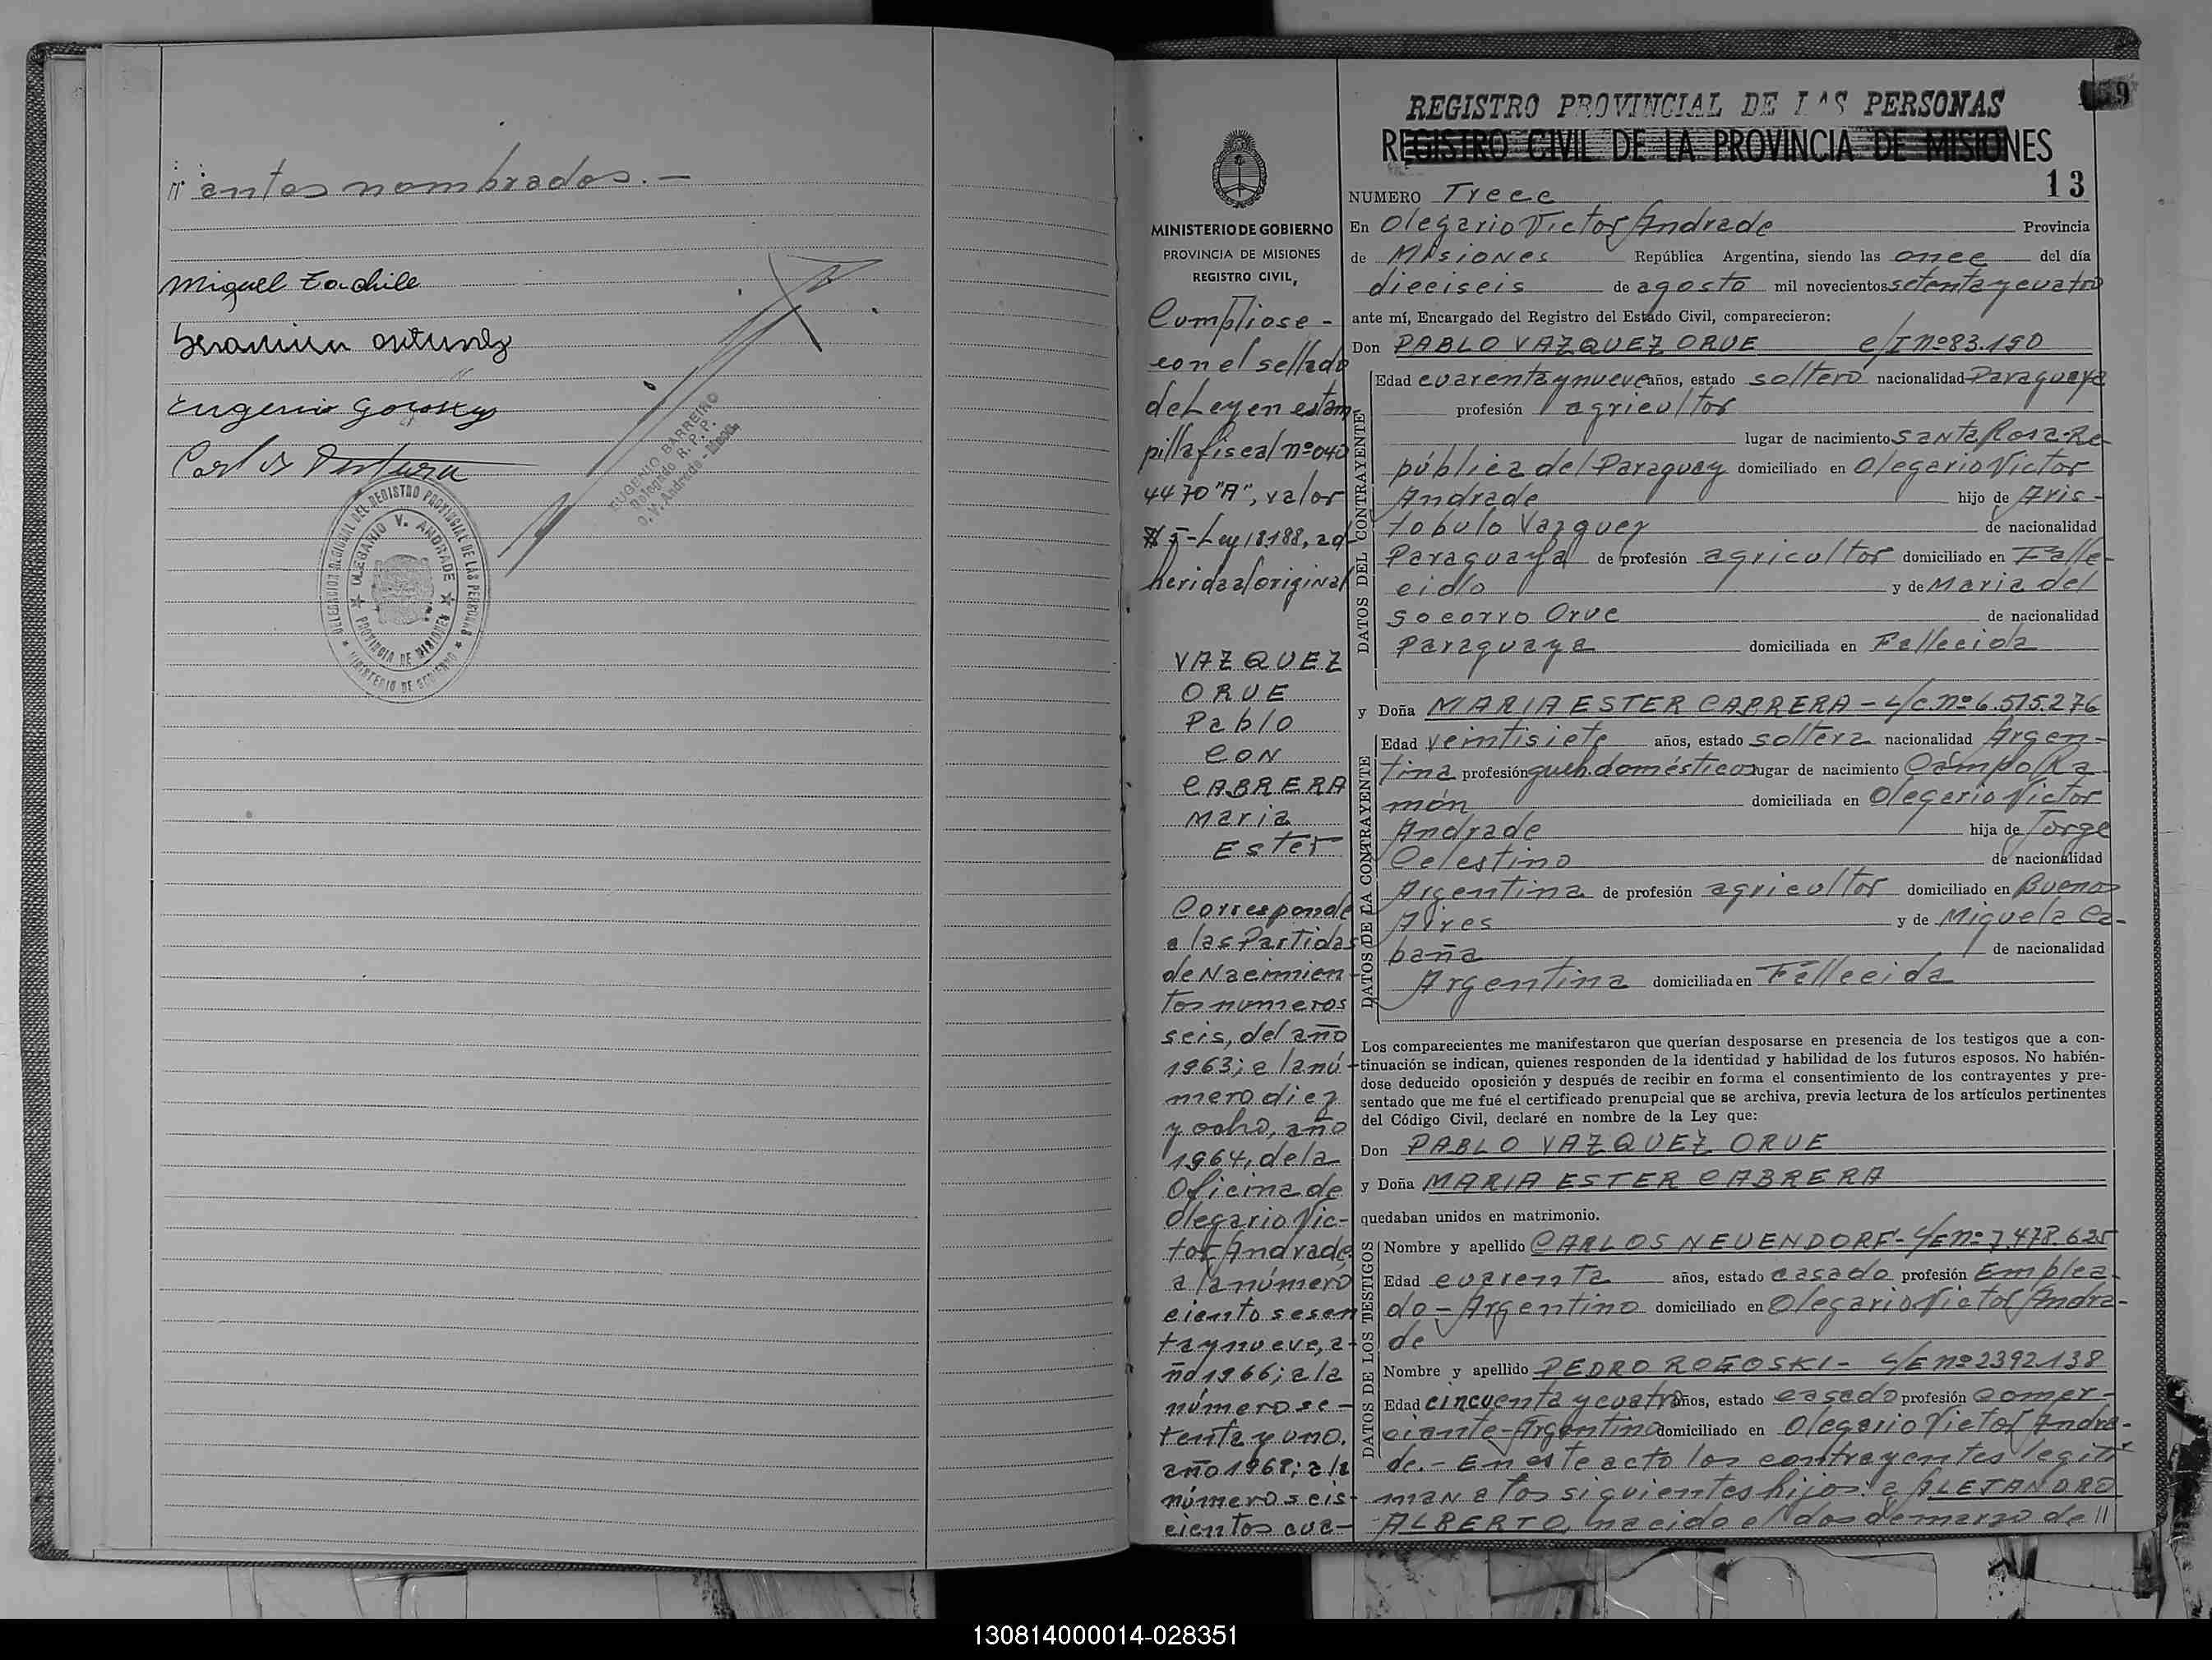 antes nombrados.-
Miguel
Eugenio
Carlos
EUGENIO BARREIRO
Delegado R. P. P.
O. V. Andrade - Mnes.
DELEGACION REGIONAL DEL REGISTRO PROVINCIAL DE LAS PERSONAS
OLEGARIO V. ANDRADE
PROVINCIA DE MISIONES
MINISTERIO DE GOBIERNO
MINISTERIO DE GOBIERNO
PROVINCIA DE MISIONES
REGISTRO CIVIL,
Cumpliose-
con el sellado
de Ley en estam-
pilla fiscal nº 040
4470 "A", valor
$ 5-Ley 18.188, ad-
herida al original
VAZQUEZ
ORUE
Pablo
CON
CABRERA
Maria
Ester
Corresponde
a las Partidas
de Nacimien-
tos numeros
seis, del año
1963; a la nú-
mero diez
y ocho, año
1964, de la
Oficina de
Olegario Vic-
tor Andrade
a la número
ciento sesen
ta y nueve, a-
ño 1966; a la
número se-
tenta y uno.
año 1968; a la
número seis-
cientos cua-
REGISTRO PROVINCIAL DE LAS PERSONAS
REGISTRO CIVIL DE LA PROVINCIA DE MISIONES
13
NUMERO Trece
En Olegario Victor Andrade Provincia
de Misiones República Argentina, siendo las once del día
dieciseis de agosto mil novecientos setenta y cuatro
ante mí, Encargado del Registro del Estado Civil, comparecieron:
Don PABLO VAZQUEZ ORUE C/I nº 83.190
DATOS DEL CONTRAYENTE
Edad cuarenta y nueve años, estado soltero nacionalidad Paraguaya
profesión agricultor
lugar de nacimiento Santa Rosa-Re-
pública del Paraguay domiciliado en Olegario Victor
Andrade hijo de Aris-
tobulo Vazquez de nacionalidad
Paraguaya de profesión agricultor domiciliado en Falle-
cido y de Maria del
Socorro Orue de nacionalidad
Paraguaya domiciliada en Fallecida
y Doña MARIA ESTER CABRERA - L/C. nº 6.515.276
DATOS DE LA CONTRAYENTE
Edad veintisiete años, estado soltera nacionalidad Argen-
tina profesión queh. domésticos lugar de nacimiento Campo Ra-
món domiciliada en Olegario Victor
Andrade hija de Jorge
Celestino de nacionalidad
Argentina de profesión agricultor domiciliado en Buenos
Aires y de Miguela Ca-
baña de nacionalidad
Argentina domiciliada en Fallecida
Los comparecientes me manifestaron que querían desposarse en presencia de los testigos que a con-
tinuación se indican, quienes responden de la identidad y habilidad de los futuros esposos. No habién-
dose deducido oposición y después de recibir en forma el consentimiento de los contrayentes y pre-
sentado que me fué el certificado prenupcial que se archiva, previa lectura de los artículos pertinentes
del Código Civil, declaré en nombre de la Ley que:
Don PABLO VAZQUEZ ORUE
y Doña MARIA ESTER CABRERA
quedaban unidos en matrimonio.
DATOS DE LOS TESTIGOS
Nombre y apellido CARLOS NEUENDORF- L/E nº 7.478.625
Edad cuarenta años, estado casado profesión Emplea-
do - Argentino domiciliado en Olegario Victor Andra-
de
Nombre y apellido PEDRO ROGOSKI - L/E nº 2392.138
Edad cincuenta y cuatro años, estado casado profesión comer-
ciante-Argentino domiciliado en Olegario Victor Andra-
de.- En este acto los contrayentes legiti
man a los siguientes hijos: a ALEJANDRO
ALBERTO, nacido el dos de marzo de //
130814000014-028351